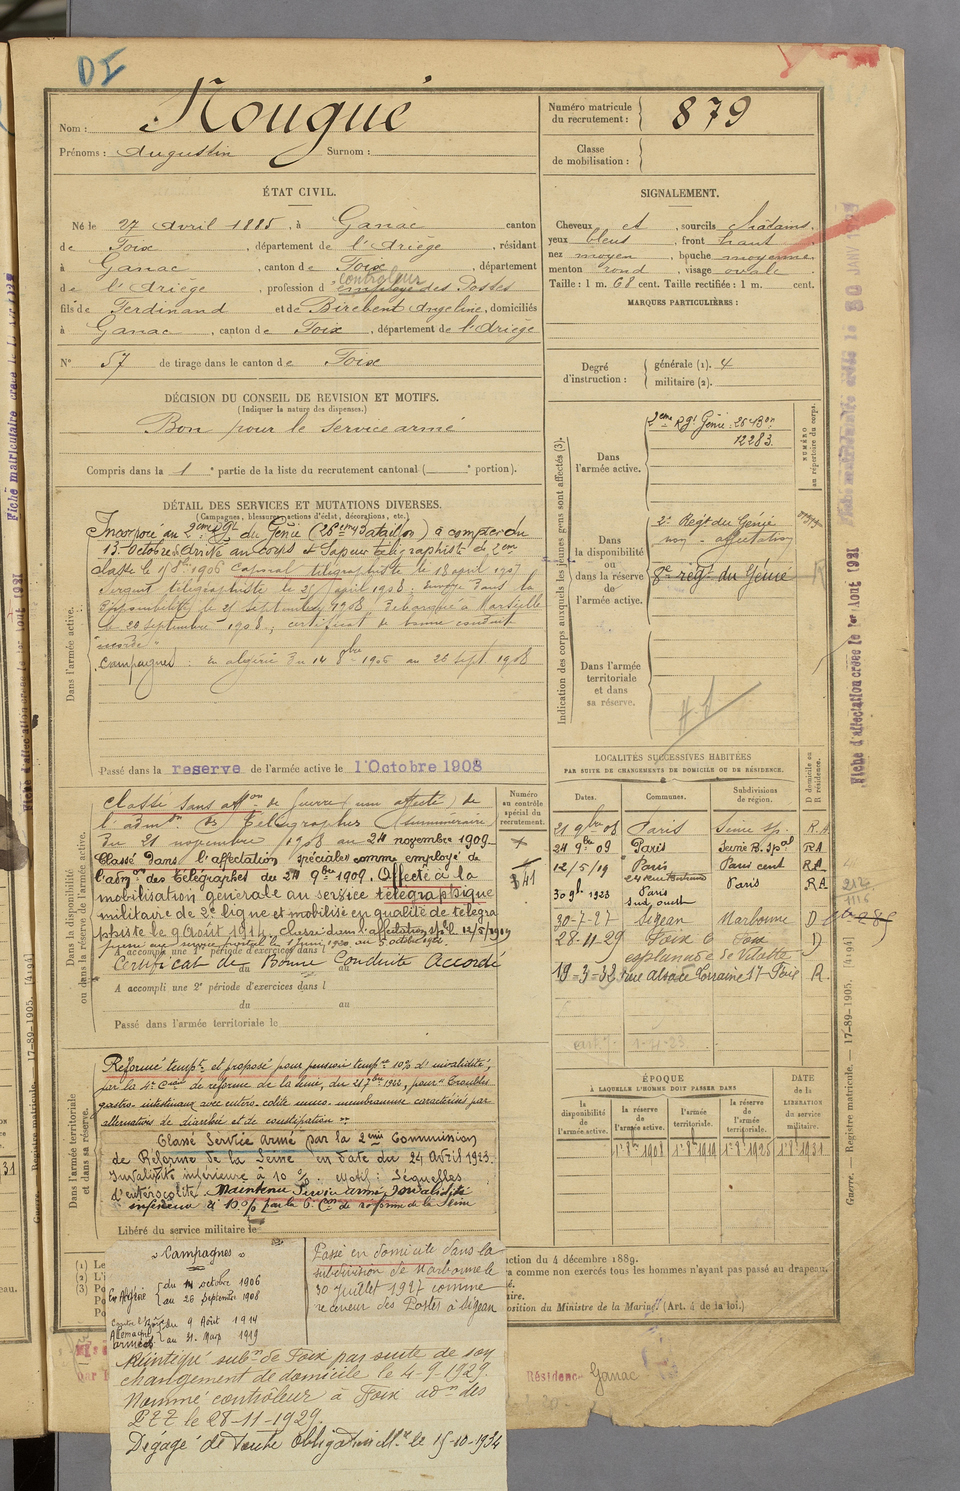 DI
Nom : Nougué
Prénoms : Augustin Surnom :
Numéro matricule du recrutement : 879
Classe de mobilisation :
ÉTAT CIVIL.
Né le 27 avril 1885, à Ganac canton
de Foix, département de l'Ariège, résidant
à Ganac, canton de Foix, département
contrôleur
de l'Ariège, profession d'employé des Postes
fils de Ferdinand et de Birebent Angeline, domiciliés
à Ganac, canton de Foix, département de l'Ariège
N° 57 de tirage dans le canton de Foix
SIGNALEMENT.
Cheveux et, sourcils châtains,
yeux bleus, front haut
nez moyen, bouche moyenne
menton rond, visage ovale
Taille : 1 m. 68 cent. Taille rectifiée : 1 m. cent.
MARQUES PARTICULIÈRES :
Degré d'instruction : générale (1). 4
militaire (2).
DÉCISION DU CONSEIL DE REVISION ET MOTIFS.
(Indiquer la nature des dispenses.)
Bon pour le service armé
Compris dans la 1 partie de la liste du recrutement cantonal ( portion).
DÉTAIL DES SERVICES ET MUTATIONS DIVERSES.
(Campagnes, blessures, actions d'éclat, décorations, etc.)
Dans l'armée active.
Incorporé au 2ème Rgt du Génie (26ème Bataillon) à compter du
13 octobre arrivé au corps et Sapeur télégraphiste de 2me
classe le 8bre 1906 Caporal télégraphiste le 18 avril 1907
Sergent télégraphiste le avril 1908. dans la
disponibilité le 21 septembre 1908, débarqué à Marseille
le 20 septembre 1908, certificat de bonne conduite
accordé
Campagnes : en algérie du 14 8bre 1906 au 26 sept 1908
Passé dans la reserve de l'armée active le 1 Octobre 1908
Indication des corps auxquels les jeunes gens sont affectés (3).
NUMÉRO au répertoire du corps.
Dans l'armée active.
2eme Rgt Génie 26e Bon
12283
Dans la disponibilité ou dans la réserve de l'armée active.
2e Régt du Génie
non-affectation
8e régt du Génie
Dans l'armée territoriale et dans sa réserve.
Dans la disponibilité ou dans la réserve de l'armée active.
Numéro au contrôle spécial du recrutement.
X
341
classé sans affon de Guerre (non affecté) de
l'admon des Télégraphes
du 21 novembre 1908 au 24 novembre 1909
Classé dans l'affectation spéciale comme employé de
l'admon des Télégraphes du 24 9bre 1909. Affecté à la
mobilisation générale au service télégraphique
militaire de 2e ligne et mobilisé en qualité de télégra
phiste le 9 Août 1914. classé dans l'affectation sple le 12/5/1919
A accompli une 1re période d'exercices dans l
Certificat de Bonne Conduite Accordé
du au
A accompli une 2e période d'exercices dans l
du au
Passé dans l'armée territoriale le
LOCALITÉS SUCCESSIVES HABITÉES
PAR SUITE DE CHANGEMENTS DE DOMICILE OU DE RÉSIDENCE.
Dates. Communes. Subdivisions de région. D domicile ou R résidence.
21 9bre 08 Paris Seine sp. R.A
24 9bre 09 Paris Seine B. spal RA
12/5/19 Paris Paris cent RA
30 9b. 1923 Paris Paris RA
Sud ouest
30-7-27 Sigean Narbonne D
28-11-29 Foix Foix D
esplanade de Vilotte
19-3-32 rue Alsace Lorraine 17 Foix R.
Dans l'armée territoriale et dans sa réserve.
Réformé tempre et proposé pour pension tempre 10% d'invalidité;
par la 4e Cion de réforme de la Seine, du 21 7bre 1922, pour "Troubles
gastro-intestinaux avec entero-colite muco-membraneuse caractérisés par
alternatives de diarrhée et de constipation"
Classé Service Armé par la 2eme Commission
de Réforme de la Seine en date du 24 Avril 1923.
Invalidité inférieure à 10 %. Motif : Séquelles
d'entérocolite. Maintenu Service armé, Invalidité
inférieure à 10% par la 6e Con de réforme de la Seine
Libéré du service militaire le
ÉPOQUE
À LAQUELLE L'HOMME DOIT PASSER DANS
la disponibilité de l'armée active.
la réserve de l'armée active.
l'armée territoriale.
la réserve de l'armée territoriale.
DATE de la LIBÉRATION du service militaire.
1er 8bre 1908 1er 8bre 1919 1er 8bre 1925 1er 8bre 1931
ction du 4 décembre 1889.
a comme non exercés tous les hommes n'ayant pas passé au drapeau.
position du Ministre de la Marine (Art. 4 de la loi.)
"Campagnes"
En Algérie du 14 octobre 1906
au 26 Septembre 1908
Contre l'Allemagne du 9 Août 1914
armées au 31 Mars 1919
Passé en domicile dans la
subdivision de Narbonne le
30 juillet 1927 comme
receveur des Postes à Sigean
Réintégré subon de Foix par suite de son
changement de domicile le 4-9-1929.
Nommé contrôleur à Foix adon des
PTT le 28-11-1929.
Dégagé de toute obligation Mre le 15-10-1934
Résidence Ganac
Fiche d'affectation créée le 1er Août 1931
Guerre. — Registre matricule. — 17-89-1905. [4194]